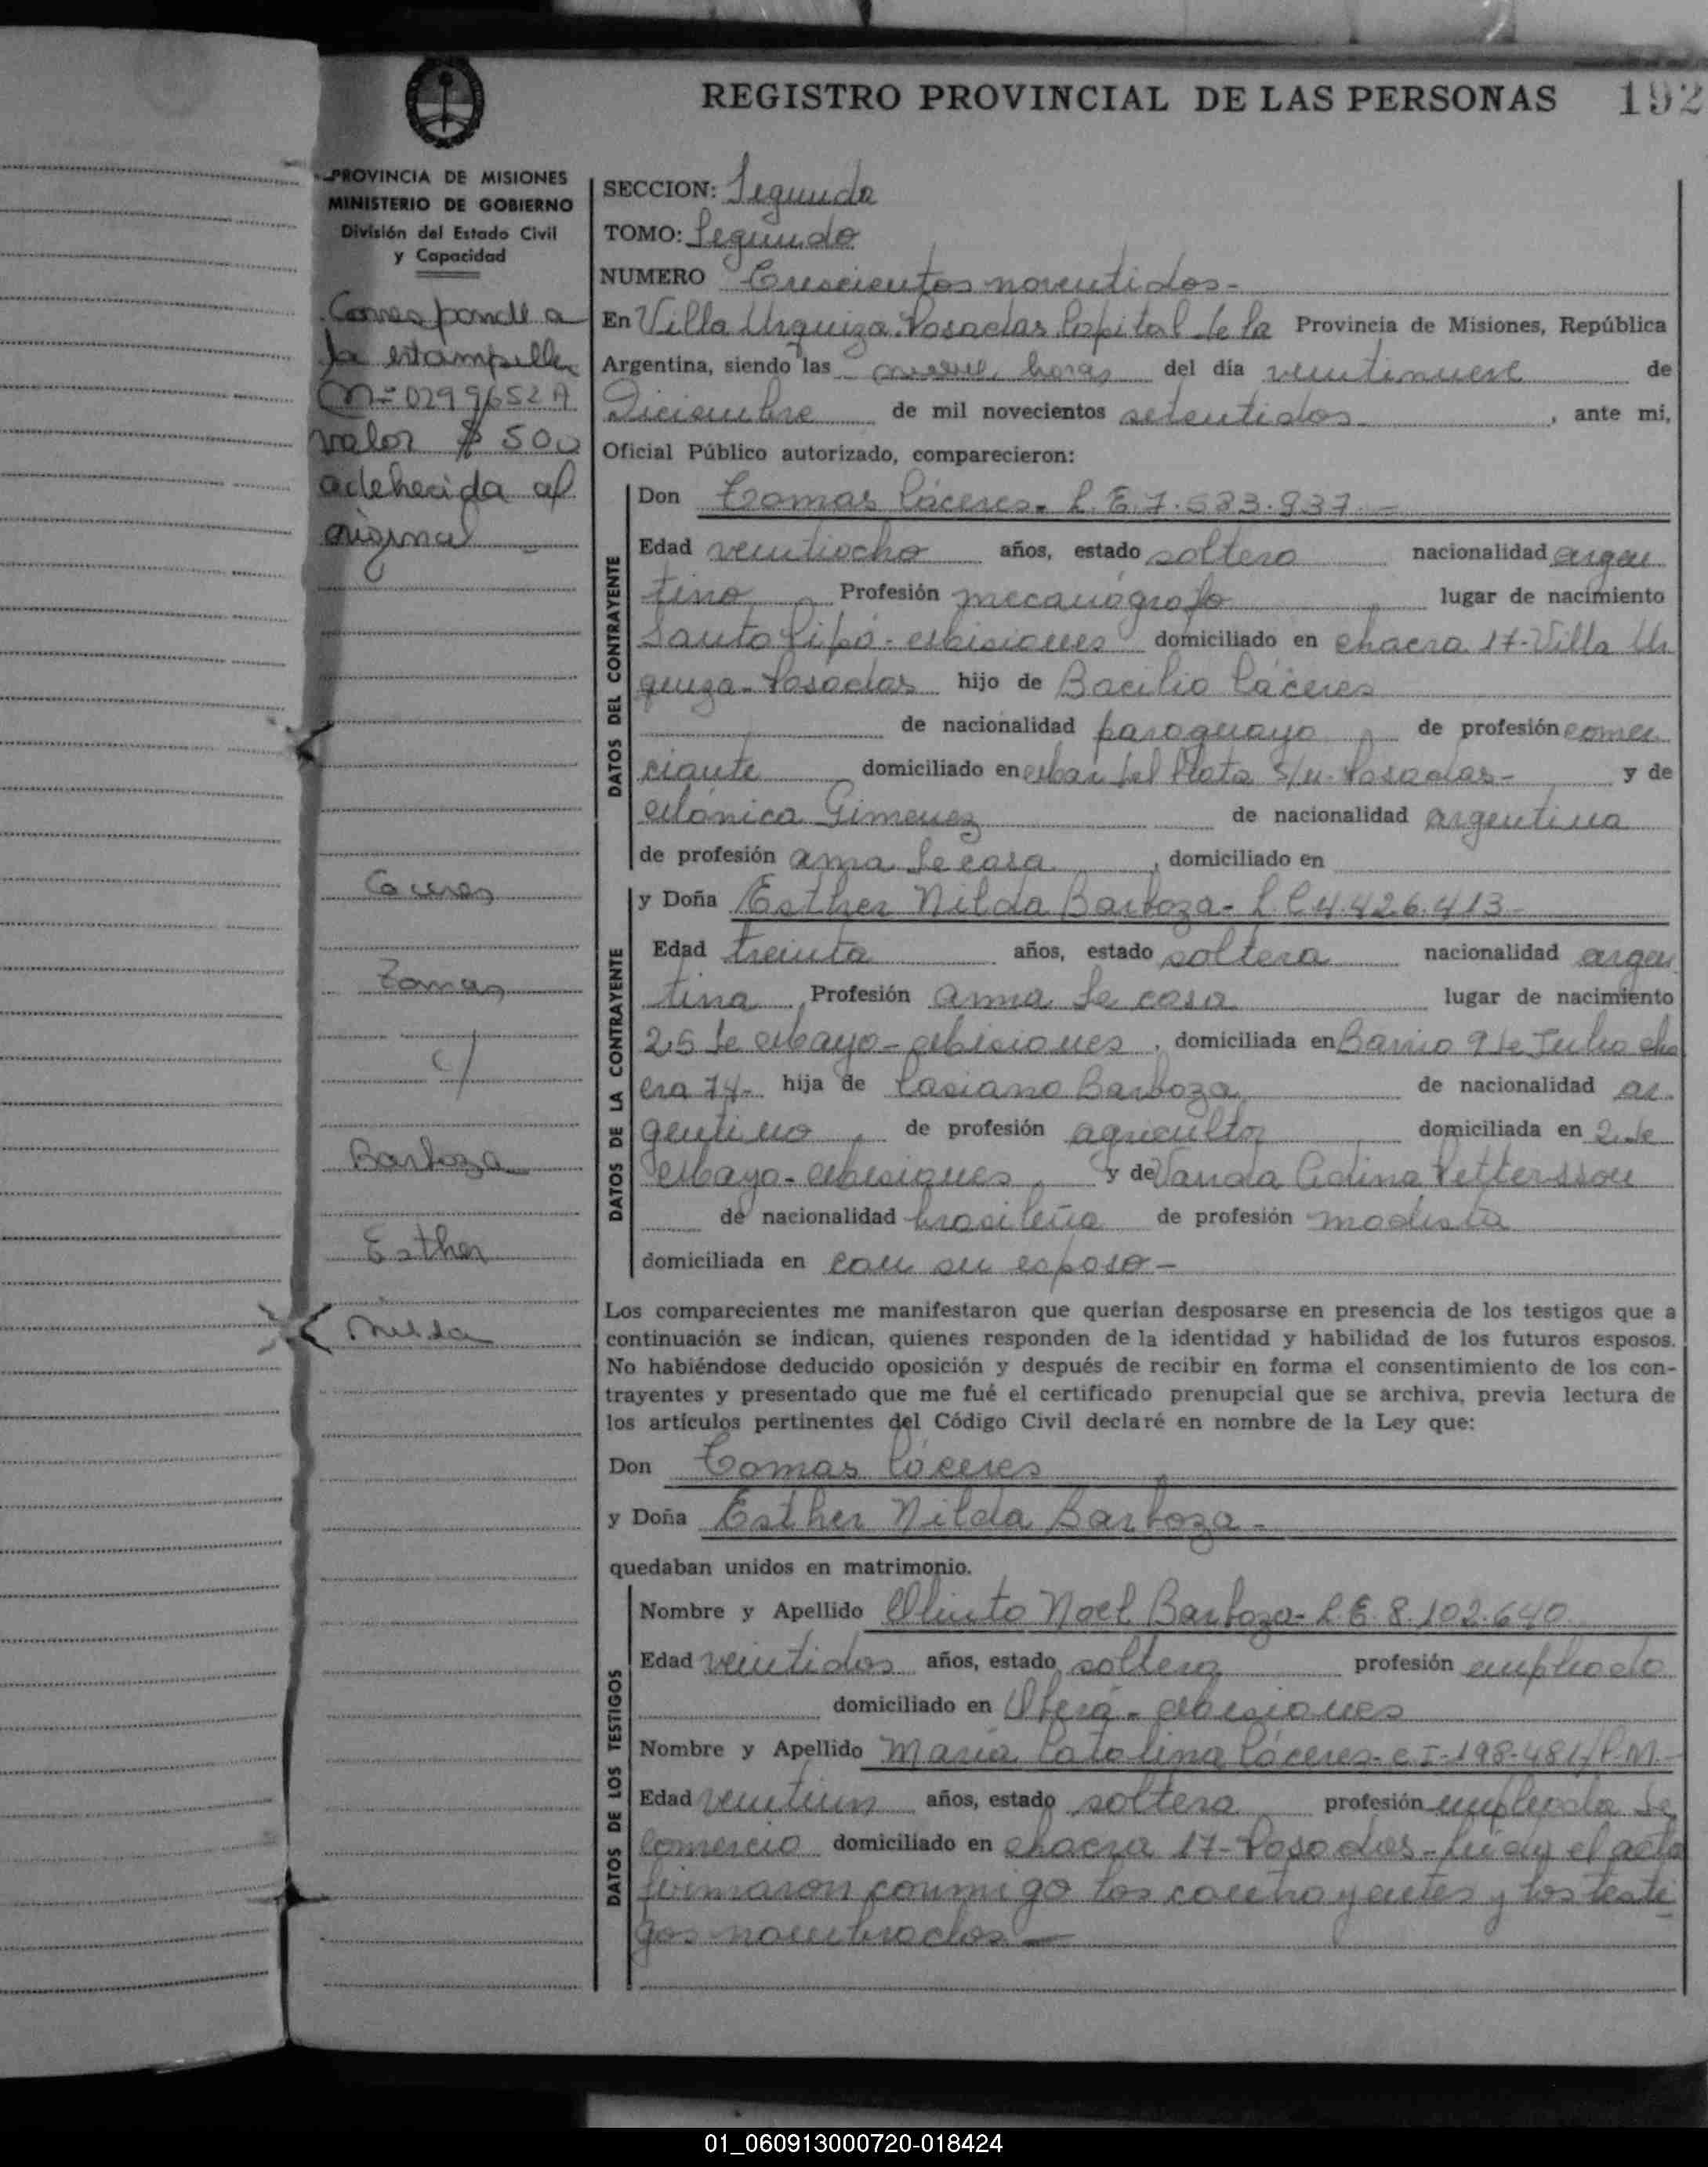 REGISTRO PROVINCIAL DE LAS PERSONAS 192
PROVINCIA DE MISIONES
MINISTERIO DE GOBIERNO
División del Estado Civil
y Capacidad
Corresponde a
la estampilla
Nº 0299652 A
valor $ 500
adeherida al
original
Caceres
Tomas
c/
Barboza
Esther
Nilda
SECCION: Segunda
TOMO: Segundo
NUMERO Trescientos noventidos-
En Villa Urquiza Posadas Capital de la Provincia de Misiones, República
Argentina, siendo las nueve horas del día veintinueve de
Diciembre de mil novecientos setentidos , ante mi,
Oficial Público autorizado, comparecieron:
DATOS DEL CONTRAYENTE
Don Tomas Cáceres- L.E.7.583.937-
Edad veintiocho años, estado soltero nacionalidad argen
tino Profesión mecanógrafo lugar de nacimiento
Santo Pipó-Misiones domiciliado en chacra 17-Villa Ur
quiza-Posadas hijo de Bacilio Cáceres
de nacionalidad paraguayo de profesión comer
ciante domiciliado en Mar del Plata S/n-Posadas- y de
Mónica Gimenez de nacionalidad argentina
de profesión ama de casa , domiciliado en
DATOS DE LA CONTRAYENTE
y Doña Esther Nilda Barboza- L.C 4.426.413-
Edad treinta años, estado soltera nacionalidad argen
tina Profesión ama de casa lugar de nacimiento
25 de Mayo-Misiones , domiciliada en Barrio 9 de Julio cha
cra 74- hija de Casiano Barboza de nacionalidad ar
gentino de profesión agricultor domiciliada en 2 de
Mayo-Misiones y de Vanda Pettersson
de nacionalidad brasileña de profesión modista
domiciliada en con su esposo-
Los comparecientes me manifestaron que querían desposarse en presencia de los testigos que a
continuación se indican, quienes responden de la identidad y habilidad de los futuros esposos.
No habiéndose deducido oposición y después de recibir en forma el consentimiento de los con-
trayentes y presentado que me fué el certificado prenupcial que se archiva, previa lectura de
los artículos pertinentes del Código Civil declaré en nombre de la Ley que:
Don Tomas Cáceres
y Doña Esther Nilda Barboza-
quedaban unidos en matrimonio.
DATOS DE LOS TESTIGOS
Nombre y Apellido Olinto Noel Barboza- L E 8.102.640
Edad veintidos años, estado soltero profesión empleado
domiciliado en Oberá-Misiones
Nombre y Apellido María Catalina Cáceres- C I-198-481/P.M.-
Edad veintiun años, estado soltera profesión empleada de
Comercio domiciliado en chacra 17-Posadas- el acta
firmaron conmigo los contrayentes y los testi
gos nombrados-
01_060913000720-018424